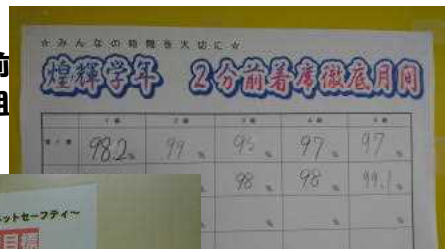 前
組
☆みんなの時間を大切に☆
煌輝学年 2分前着席徹底月间
1組 2組 3組 4組 5組
98.2% 99% 95% 97% 97%
98% 98% 99.1%
% % %
ネットセーフティ～
目標